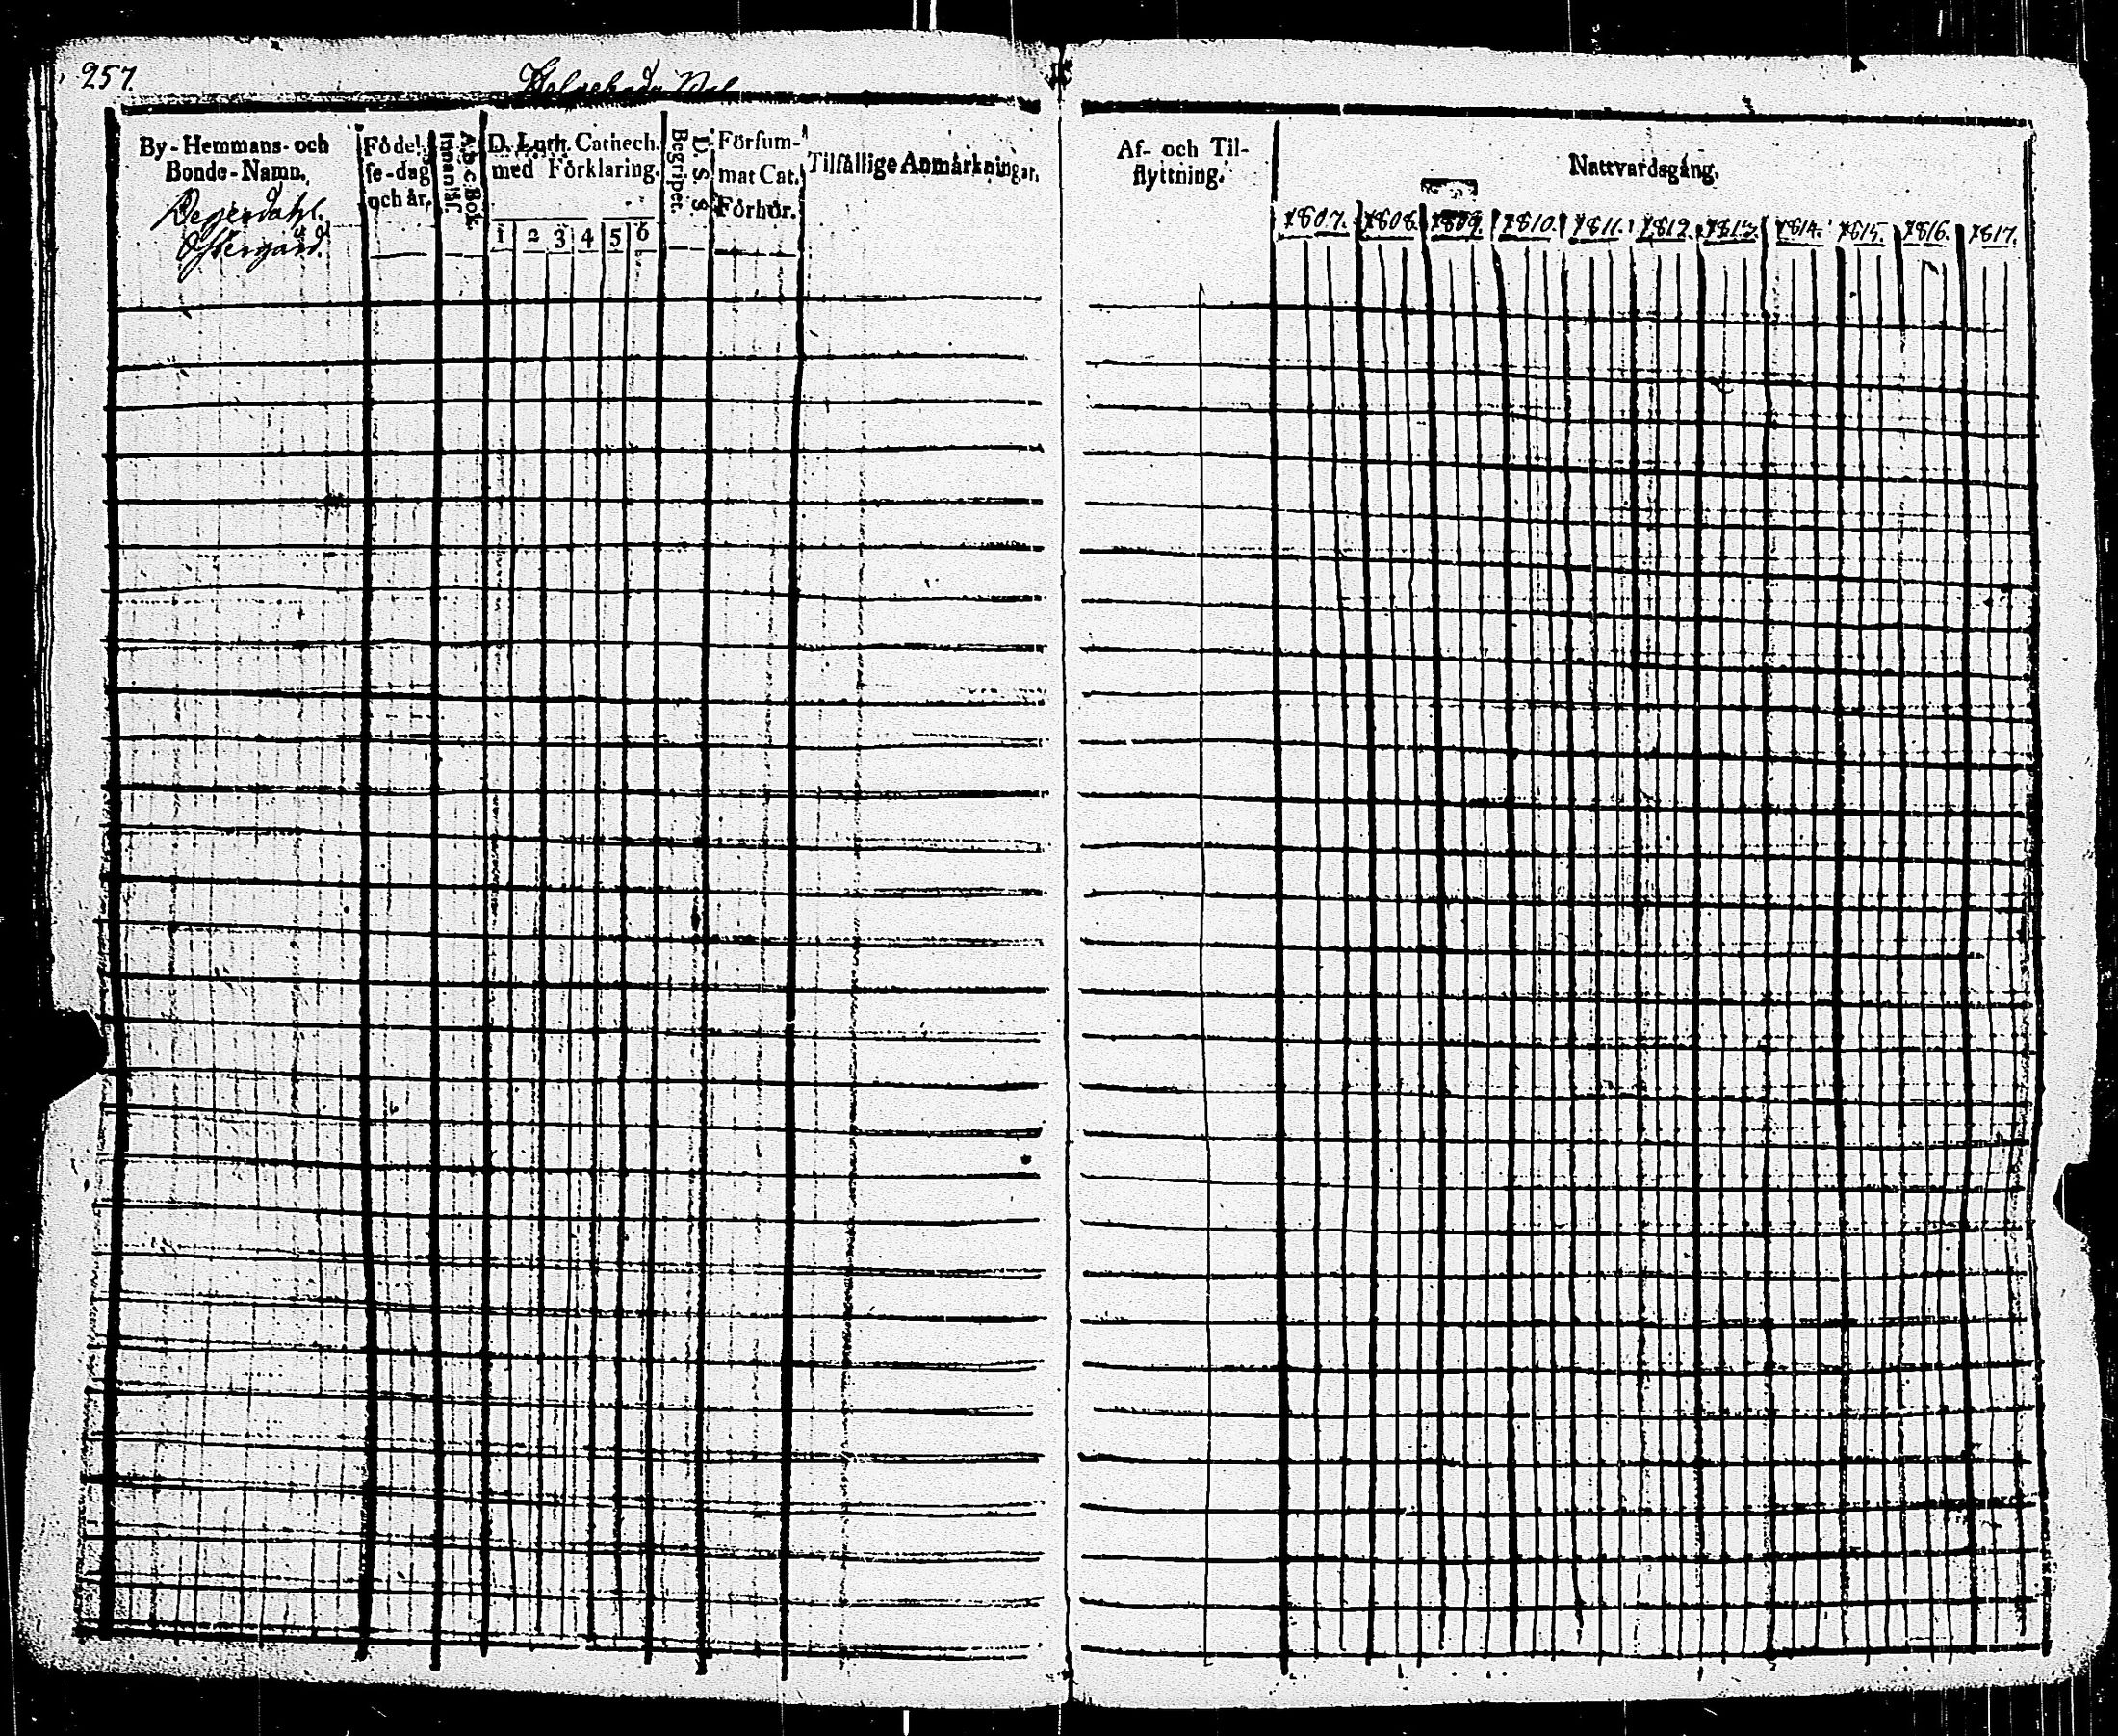 257.
By-Hemmans- och
Bonde-Namn.
Degerdahl.
Östergård.
Födel-
se-dag
och år.
A b c Bok.
Innanläs.
D. Luth. Cathech.
med Förklaring.
1 2 3 4 5 6
D. S. S.
Begripet.
Försum-
mat Cat.
Förhör.
Tilfällige Anmärkningar.
Af- och Til-
flyttning.
Nattvardsgång.
1807. 1808. 1809. 1810. 1811. 1812. 1813. 1814. 1815. 1816. 1817.